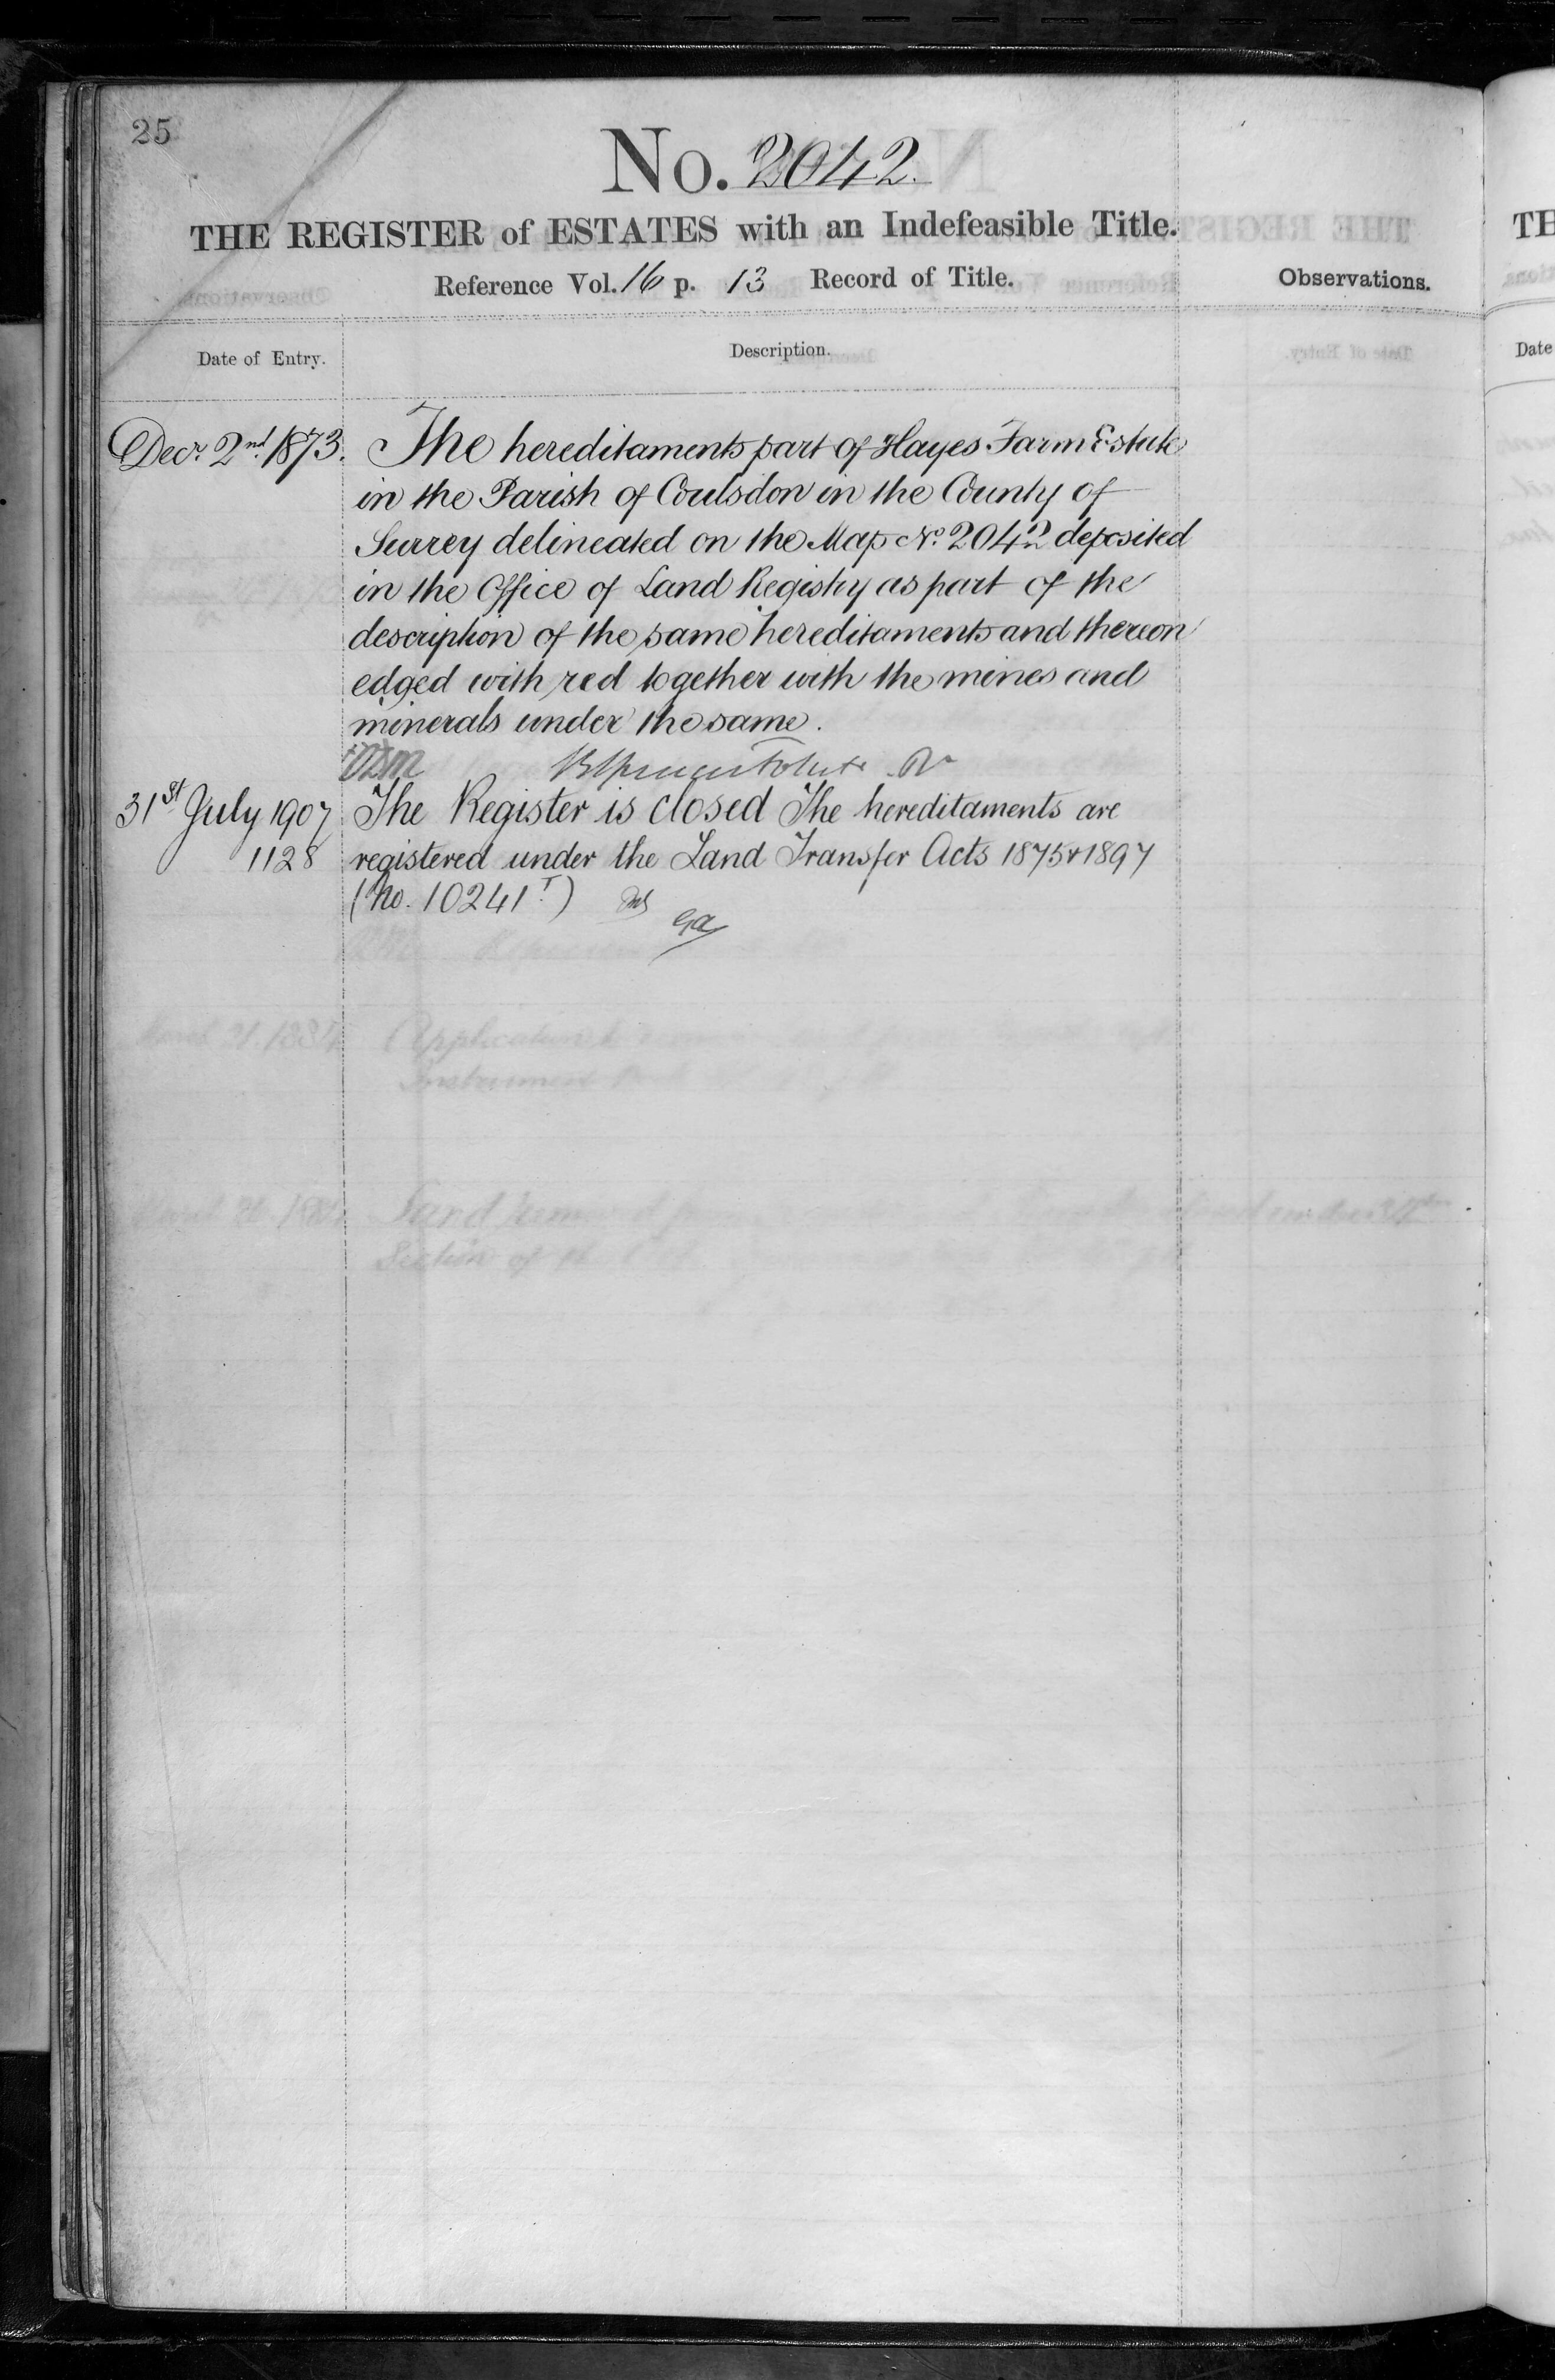 25
No. 2042.
THE REGISTER of ESTATES with an Indefeasible Title.
Reference Vol. 16 p. 13 Record of Title.
Observations.
Date of Entry.
Description.
Decr. 2nd. 1873.
The hereditaments part of Hayes Farm Estate
in the Parish of Coulsdon in the County of
Surrey delineated on the Map No. 2042 deposited
in the Office of Land Registry as part of the
description of the same hereditaments and thereon
edged with red together with the mines and
minerals under the same.
31st July 1907
1128
The Register is closed The hereditaments are
registered under the Land Transfer Acts 1875 & 1897
(No. 10241 T.)
TH
Date